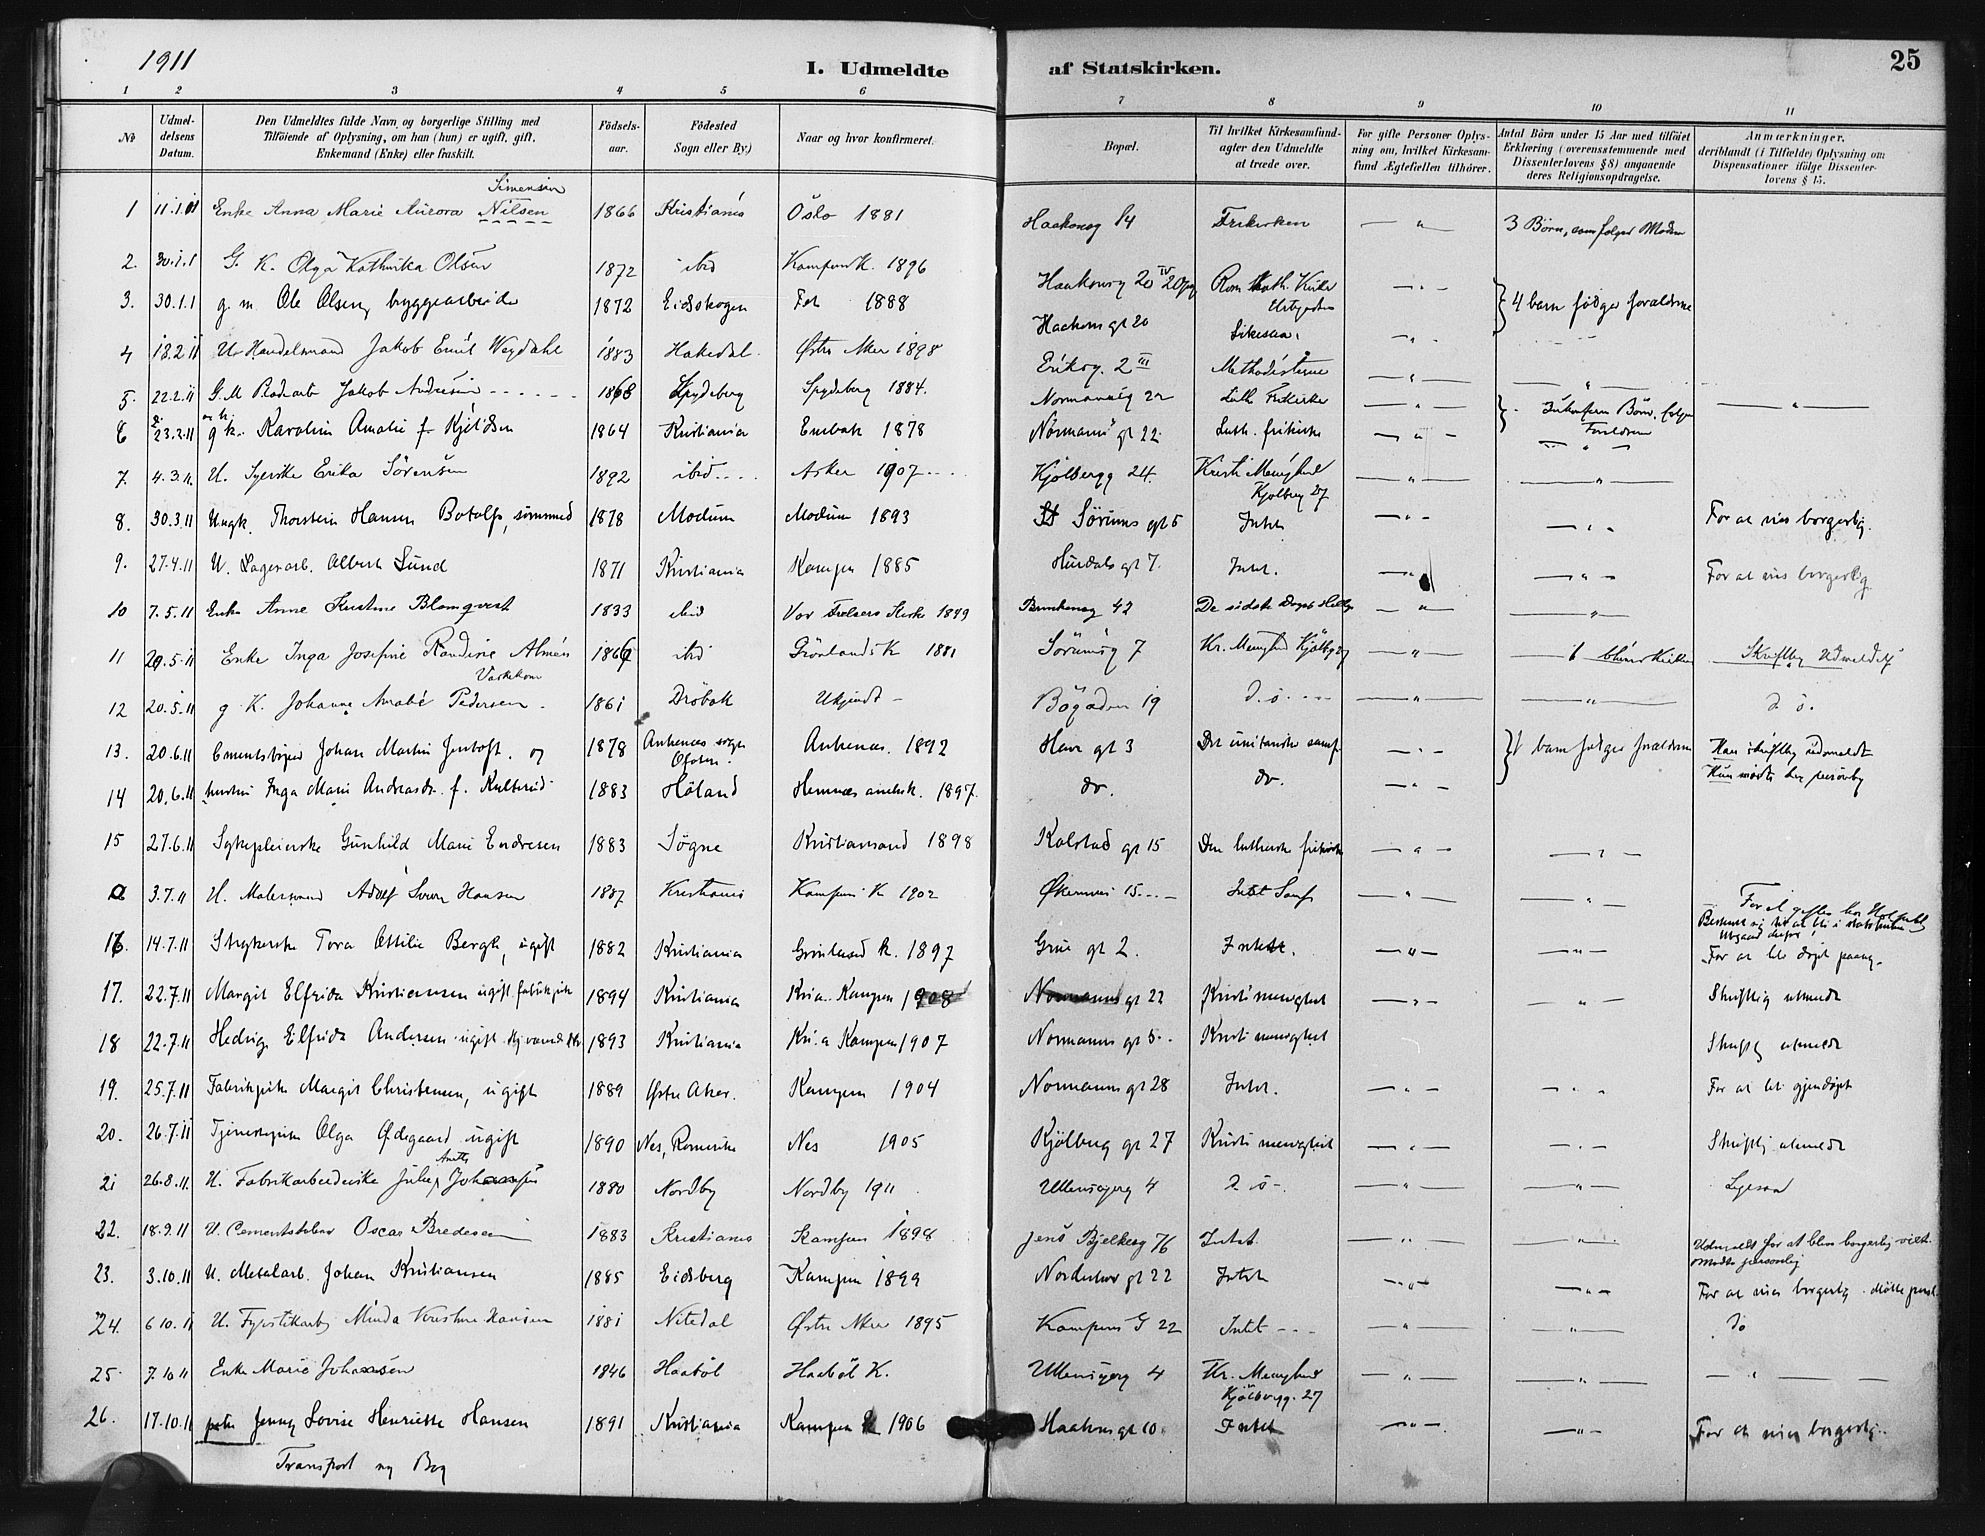 1911
I. Udmeldte af Statskirken.
25
1 2 3 4 5 6 7 8 9 10 11
No
Udmeldelsens Datum.
Den Udmeldtes fulde Navn og borgerlige Stilling med Tilføiende af Oplysning, om han (hun) er ugift, gift, Enkemand (Enke) eller fraskilt.
Fødselsaar.
Fødested Sogn eller By.)
Naar og hvor konfirmeret.
Bopæl.
Til hvilket Kirkesamfund agter den Udmeldte at træde over.
For gifte Personer Oplysning om, hvilket Kirkesamfund Ægtefællen tilhører.
Antal Börn under 15 Aar med tilföiet Erklæring (overensstemmende med Dissenterlovens § 8) angaaende deres Religionsopdragelse.
Anmærkninger, deriblandt (i Tilfælde) Oplysning om Dispensationer ifölge Dissenterlovens § 15.
Simensen
1 11.1.01 Enke Anna Marie Aurora Nilsen 1866 Kristiania Oslo 1881 Haakonsg 14 Frikirken — " — 3 Börn, som følger Moderen
2. 30.1.1 G. K. Olga Kathinka Olsen 1872 ibid Kampens K. 1896 Haakonsg 20 IV Rom. Kath. Kirke — " —
3. 30.1.1 g. m Ole Olsen, byggearbeider 1872 Eidskogen Fet 1888 Haakons gt 20 Likesaa. — " — } 4 barn følger forældrene
4 18.2 11 U Handelsmand Jakob Emil Wegdahl 1883 Hakedal Østre Aker 1898 Eriksg. 2 III Methodisterne — " — — " —
5. 22.2.11 G. M Jakob Andresen 1868 Spydeberg Spydeberg 1884. Normannsg 22 Luth Frikirke — " — } Börn, følger Forældrene — " —
6 23.2.11 g k. Karoline Amalie f. Kjeldsen 1864 Kristiania Enebak 1878 Normanns gt 22. Luth. frikirke — " — — " —
7. 4.3.11. U. Syerske Erika Sörensen 1892 ibid Asker 1907 Kjölbergg 24. Kristi Menighed Kjölberg 27 — " — — " —
8. 30.3.11 Ungk. Thorstein Hansen Botolfs, sömmand 1878 Modum Modum 1893 Sörums gt 5 Intet — " — — " — For at vies borgerlig.
9. 27.4.11 U. Lagerarb. Albert Lund 1871 Kristiania Kampen 1885 Hurdals gt 7. Intet. — " — — " — For at vies borgerlig
10 7.5.11 Enke Anne Kirstine Blomqvist 1833 ibid Vor Frelsers Kirke 1849 42 De sidste Dages Hellige — " — — " —
11 20.5.11 Enke Inga Josefine Randine Almén Vaskekone 1866 ibid Grönlands K 1881 Sörumsg 7 Kr. Menighed Kjölbg 27 — " — Skriftlig Udmeldt
12 20.5.11 g. K. Johanne Amalie Pedersen 1861 Dröbak Ukjendt — Bögaden 19 d. o. — " — — " — d o.
13. 20.6.11 Cementstöper Johan Martin Jentoft. og 1878 Ankenes sogn Ofoten. Ankenes. 1892 Havre gt 3 Det unitariske samf — " — } 1 barn følger forældrene Han skriftlig udmeldt
14 20.6.11 hustru Inga Marie Andreasdr. f. Kullerud 1883 Höland Hemnes anneksk. 1897. do. do. — " — Hun mödte her personlig
15 27.6.11 Sykepleierske Gunhild Marie Endresen 1883 Sögne Kristiansand 1898 Kalstad gt 15 Den lutherske frikirke — " — — " —
a 3.7.11 U. Malersvend Adolf Hansen 1887 Kristiania Kampens K 1902 Økernvei 15 Intet Samf — " — — " —
16. 14.7.11 Strykerske Tora Ottilie Bergh, ugift 1882 Kristiania Grönland k. 1897 Grue gt 2. Intet. — " — — " — For at bli döpt paany.
17. 22.7.11 Margit Elfrida Kristiansen ugift fabrikpike 1894 Kristiania Kr.a. Kampen 1908 Normanns gt 22 Kristi menighet — " — — " — Skriftlig utmeldt
18 22.7.11 Hedvig Elfrida Andersen ugift 1893 Kristiania Kr.a Kampen 1907 Normanns gt 5. Kristi menighet Skriftlig utmeldt
19. 25.7.11 Fabrikpike Margit Christensen, ugift 1889 Østre Aker. Kampen 1904 Normanns gt 28 Intet. — " — — " — For at bli gjendöpt
20. 26.7.11 Tjenestepike Olga Ødegaard ugift 1890 Nes, Romerike Nes 1905 Kjölberg gt 27 Kristi menighet — " — — " — Skriftlig utmeldt
21 26.8.11. U. Fabrikarbeiderske Julie Anette Johansen 1880 Nordby Nordby 1911 Ullensagerg 4 d. o. — " — — " — Ligesaa
22. 18.9.11 U. Cementstöber Oscar Bredesen 1883 Kristiania Kampen 1898 Jens Bjelkesg 76 Intet. — " — — " — Udmeldt for at blive borgerlig viet. Mödte personlig
23. 3.10.11 U. Metalarb. Johan Kristiansen 1885 Eidsberg Kampen 1899 Norderhov gt 22 Intet — " — — " — For at vies borgerlig. Mötte persl.
24. 6 10.11 U. Fyrstikarb Minda Kristine Hansen 1881 Nitedal Østre Aker 1895 Kampens G 22 Intet — " — — " — do
25. 7.10 11 Enke Marie Johansen 1846 Haaböl Haaböl K. Ullensagerg 4 Kr. Menighed Kjölbergg. 27 — " — — " — — " —
26. 17.10.11 pike Jenny Lovise Henriette Hansen 1891 Kristiania Kampen 1906 Haakons gt 10. Intet — " — — " — For at vies borgerlig.
Transport ny Bog